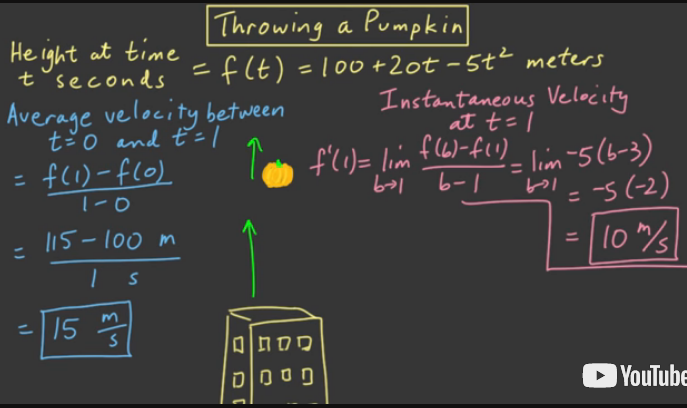 Throwing a Pumpkin
Height at time
t seconds = f(t) = 100 + 20t - 5t² meters
Average velocity between
t=0 and t=1
= f(1) - f(0) / 1 - 0
= 115 - 100 m / 1 s
= 15 m/s
Instantaneous Velocity
at t = 1
f'(1) = lim b→1 f(b) - f(1) / b - 1 = lim b→1 -5(b-3)
= -5(-2)
= 10 m/s
YouTube